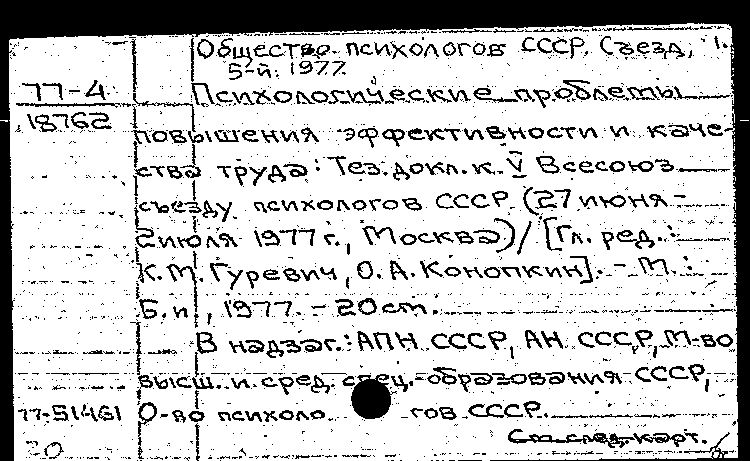 Общество психологов СССР. Съезд, 1.
5-й. 1977.
77-4 Психологические проблемы
18762 повышения эффективности и каче-
ства труда: Тез. докл. к V Всесоюз.
съезду психологов СССР. (27 июня -
2 июля 1977 г., Москва) / [Гл. ред.:
К. М. Гуревич, О. А. Конопкин]. - М.:
Б. и., 1977. - 20 см.
В надзаг.: АПН СССР, АН СССР, М-во
высш. и сред. спец. образования СССР,
77-51461 О-во психологов СССР.
20 См. след. карт.